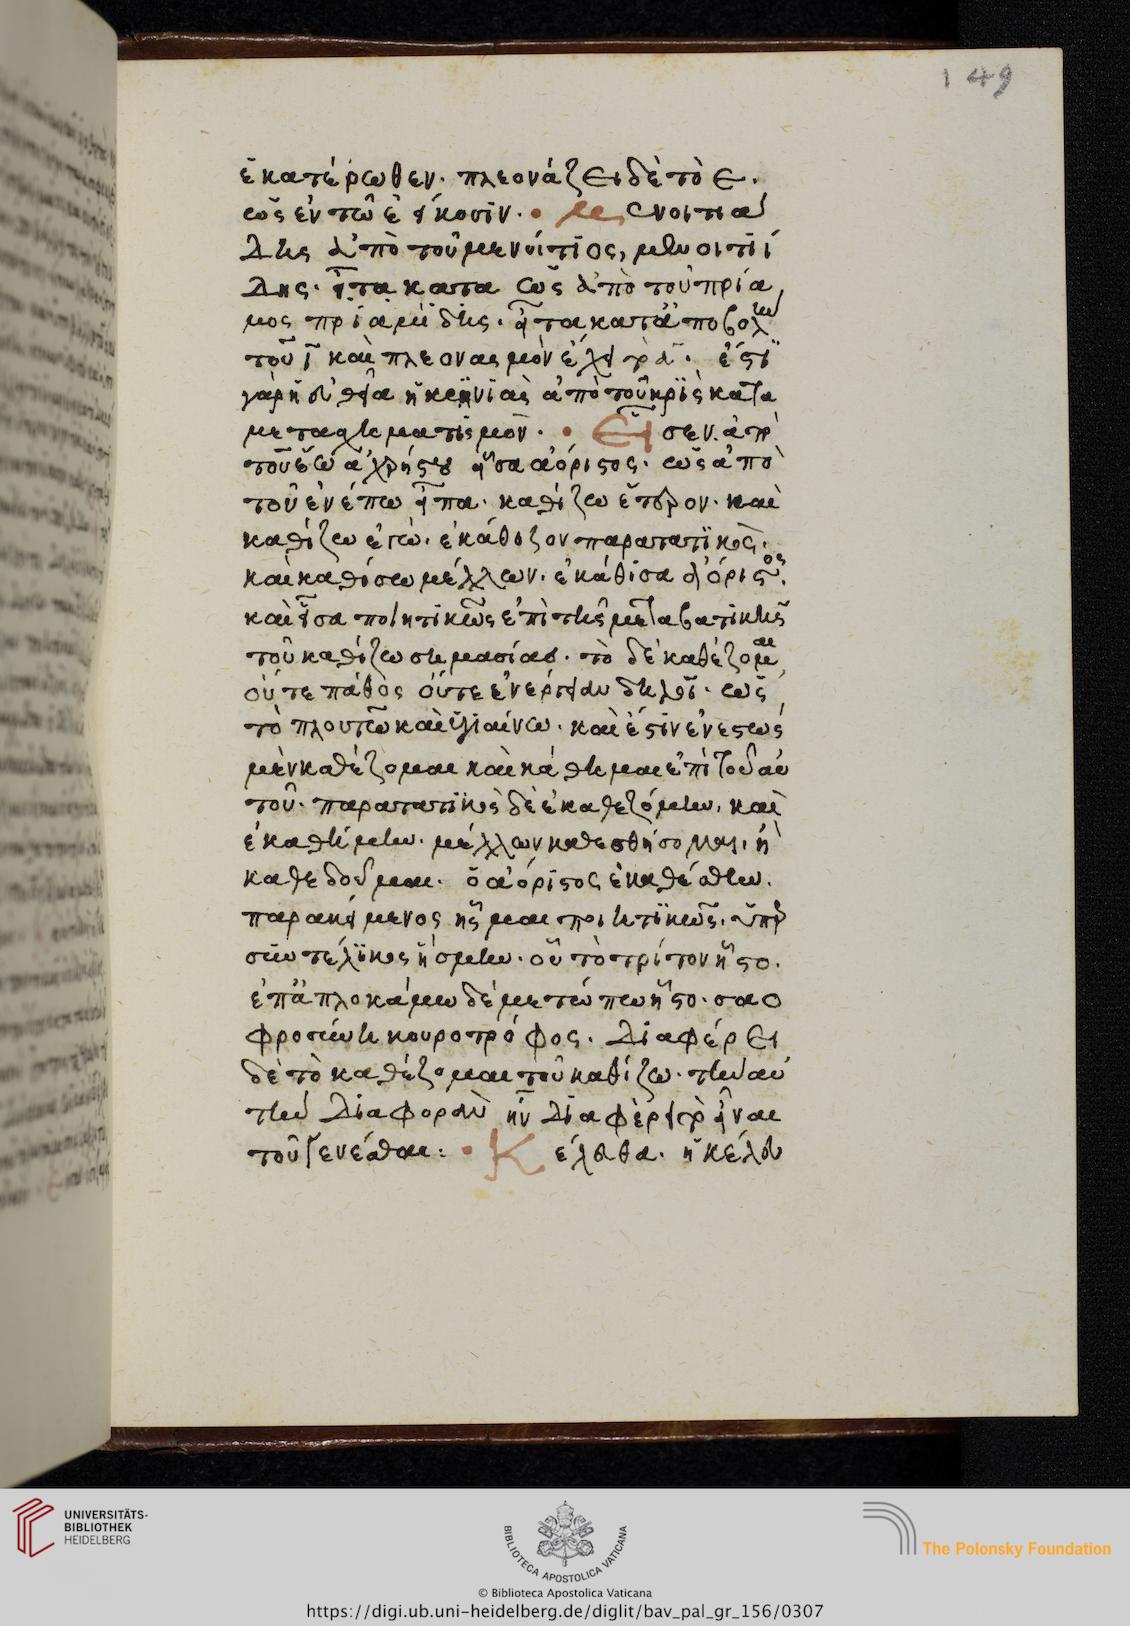 149
ἑκατέρωθεν. πλεονάζει δὲ τὸ ε.
ὡς ἐν τῷ ἐείκοσιν. Μενοιτιά
δης ἀπὸ τοῦ μενοίτιος, μενοιτιί
δης. εἶτα κατα ὡς ἀπὸ τοῦ πρία
μος πριαμίδης. εἶτα κατὰ ἀποβολὴν
τοῦ ι καὶ πλεονασμὸν ἑτέρα. ἔστι
γὰρ ἡ εὐθεῖα
μετασχηματισμόν. Εἷσεν. ἀπὸ
τοῦ ἕζω ἀχρήστου εἷσα ἀόριστος. ὡς ἀπὸ
τοῦ ἐνέπω εἶπα. καθίζω ἕτερον. καὶ
καθίζω ἐγώ. ἐκάθιζον παρατατικὸς.
καὶ καθίσω μέλλων. ἐκάθισα ἀόριστος.
καὶ εἷσα ποιητικῶς ἐπὶ τῆς μεταβατικῆς
τοῦ καθίζω σημασίας. τὸ δὲ καθέζομαι
οὔτε πάθος οὔτε ἐνέργειαν δηλοῖ. ὡς
τὸ πλουτῶ καὶ ὑγιαίνω. καὶ ἔστιν ἐνεστὼς
μὲν καθέζομαι καὶ κάθημαι ἐπὶ τοῦ αὐ
τοῦ. παρατατικὸς δὲ ἐκαθεζόμην, καὶ
ἐκαθήμην. μέλλων καθεσθήσομαι, ἢ
καθεδοῦμαι. ὁ ἀόριστος ἐκαθέσθην.
παρακείμενος ἧσμαι ποιητικῶς. ὑπερ
συντέλικος ἥσμην. οὗ τὸ τρίτον ἧστο.
ἐπ' ἀπλοκάμω δὲ μετώπω ἧστο. σαο
φροσύνη κουροτρόφος. Διαφέρει
δὲ τὸ καθέζομαι τοῦ καθίζω. τὴν αὐ
τὴν διαφορὰν ἣν διαφέρει τὸ εἶναι
τοῦ γενέσθαι: Κέλευθα. ἢ κέλευ
UNIVERSITÄTS-
BIBLIOTHEK
HEIDELBERG
BIBLIOTECA APOSTOLICA VATICANA
The Polonsky Foundation
© Biblioteca Apostolica Vaticana
https://digi.ub.uni-heidelberg.de/diglit/bav_pal_gr_156/0307